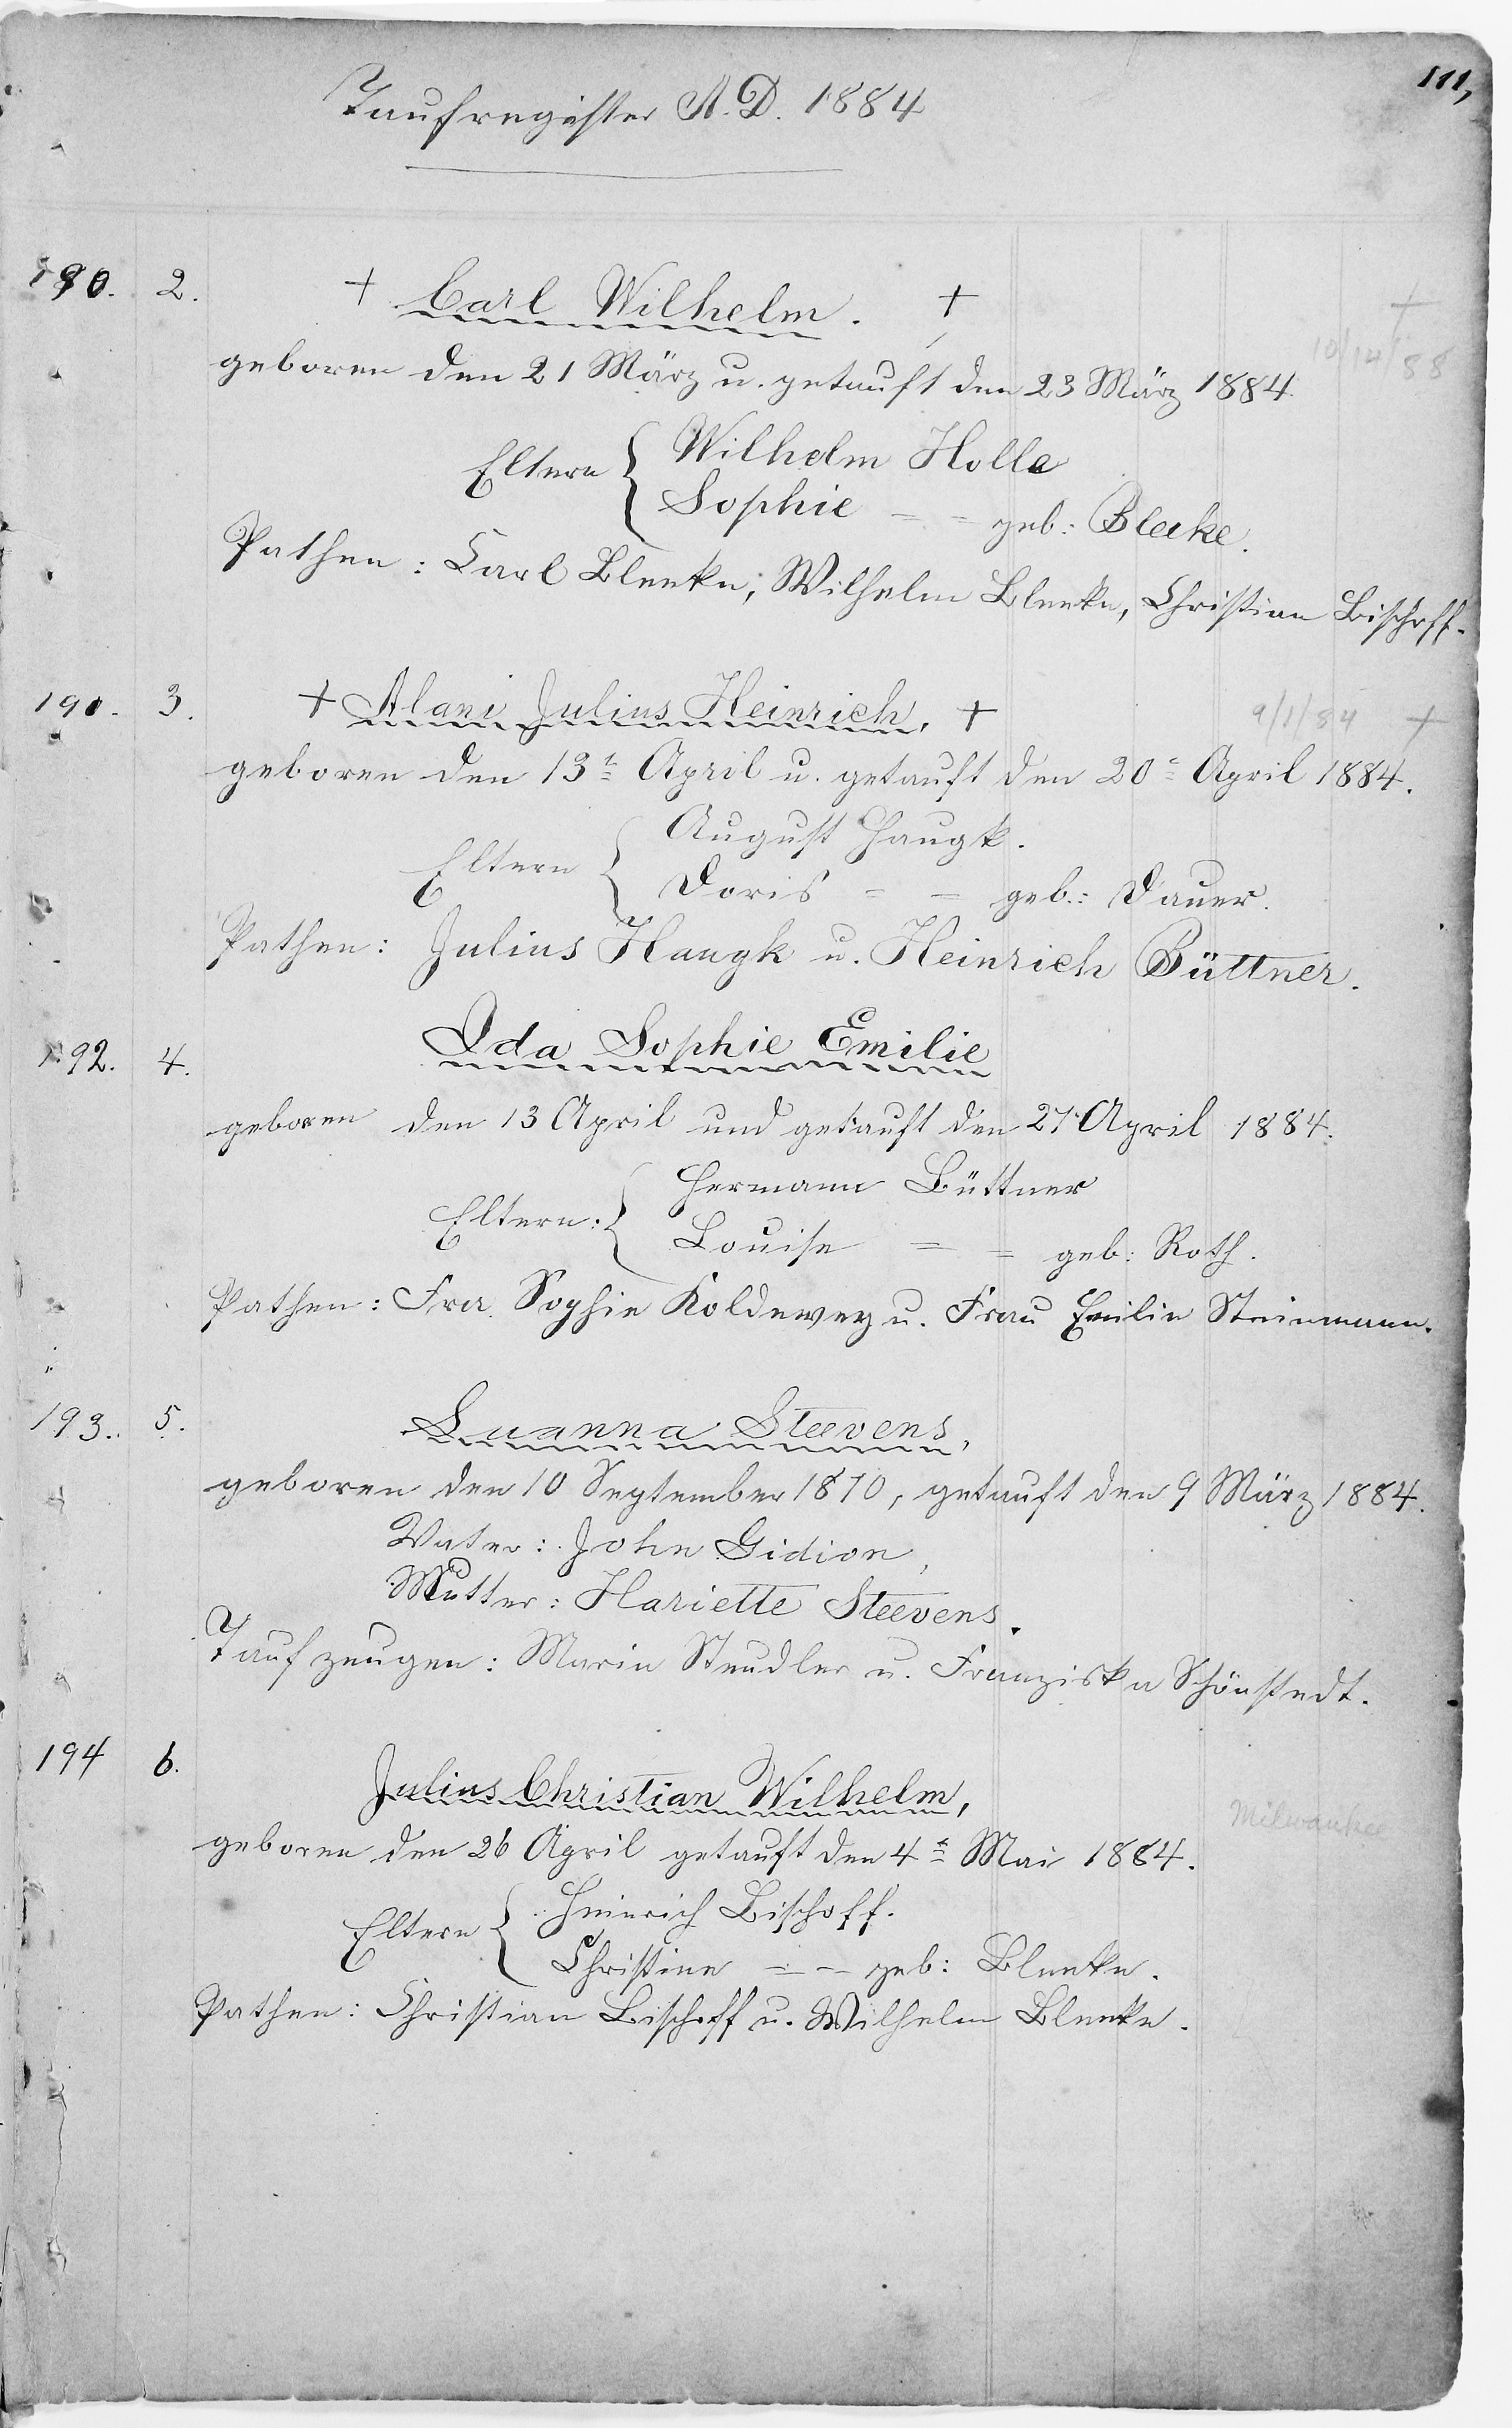 111,
Taufregister A. D. 1884
190. 2. + Carl Wilhelm. +
+
10/14/88
geboren den 21 März u. getauft den 23 März 1884
Eltern { Wilhelm Holle
Sophie = = geb: Bleeke.
Pathen: Carl Bleeke, Wilhelm Bleeke, Christian Bischoff.
191. 3. + Alani Julius Heinrich. +
9/1/84 +
geboren den 13t April u. getauft den 20t April 1884.
Eltern { August Haugk.
Doris = = geb.: Dauer.
Pathen: Julius Haugk u. Heinrich Büttner.
192. 4. Ida Sophie Emilie
geboren den 13 April und getauft den 27 April 1884.
Eltern: { Hermann Büttner
Louise = = geb: Roth.
Pathen: Fra Sophie Koldewey u. Frau Emilie Steinmann.
193. 5. Luanna Steevens,
geboren den 10 September 1870, getauft den 9 März 1884.
Vater: John Gidion,
Mutter: Hariette Steevens.
Taufzeugen: Marie Steudler u. Franziska Schönstedt.
194 6. Julius Christian Wilhelm,
Milwaukee
geboren den 26 April getauft den 4t Mai 1884.
Eltern { Heinrich Bischoff.
Christine = = geb: Bleeke.
Pathen: Christian Bischoff u. Wilhelm Bleeke.